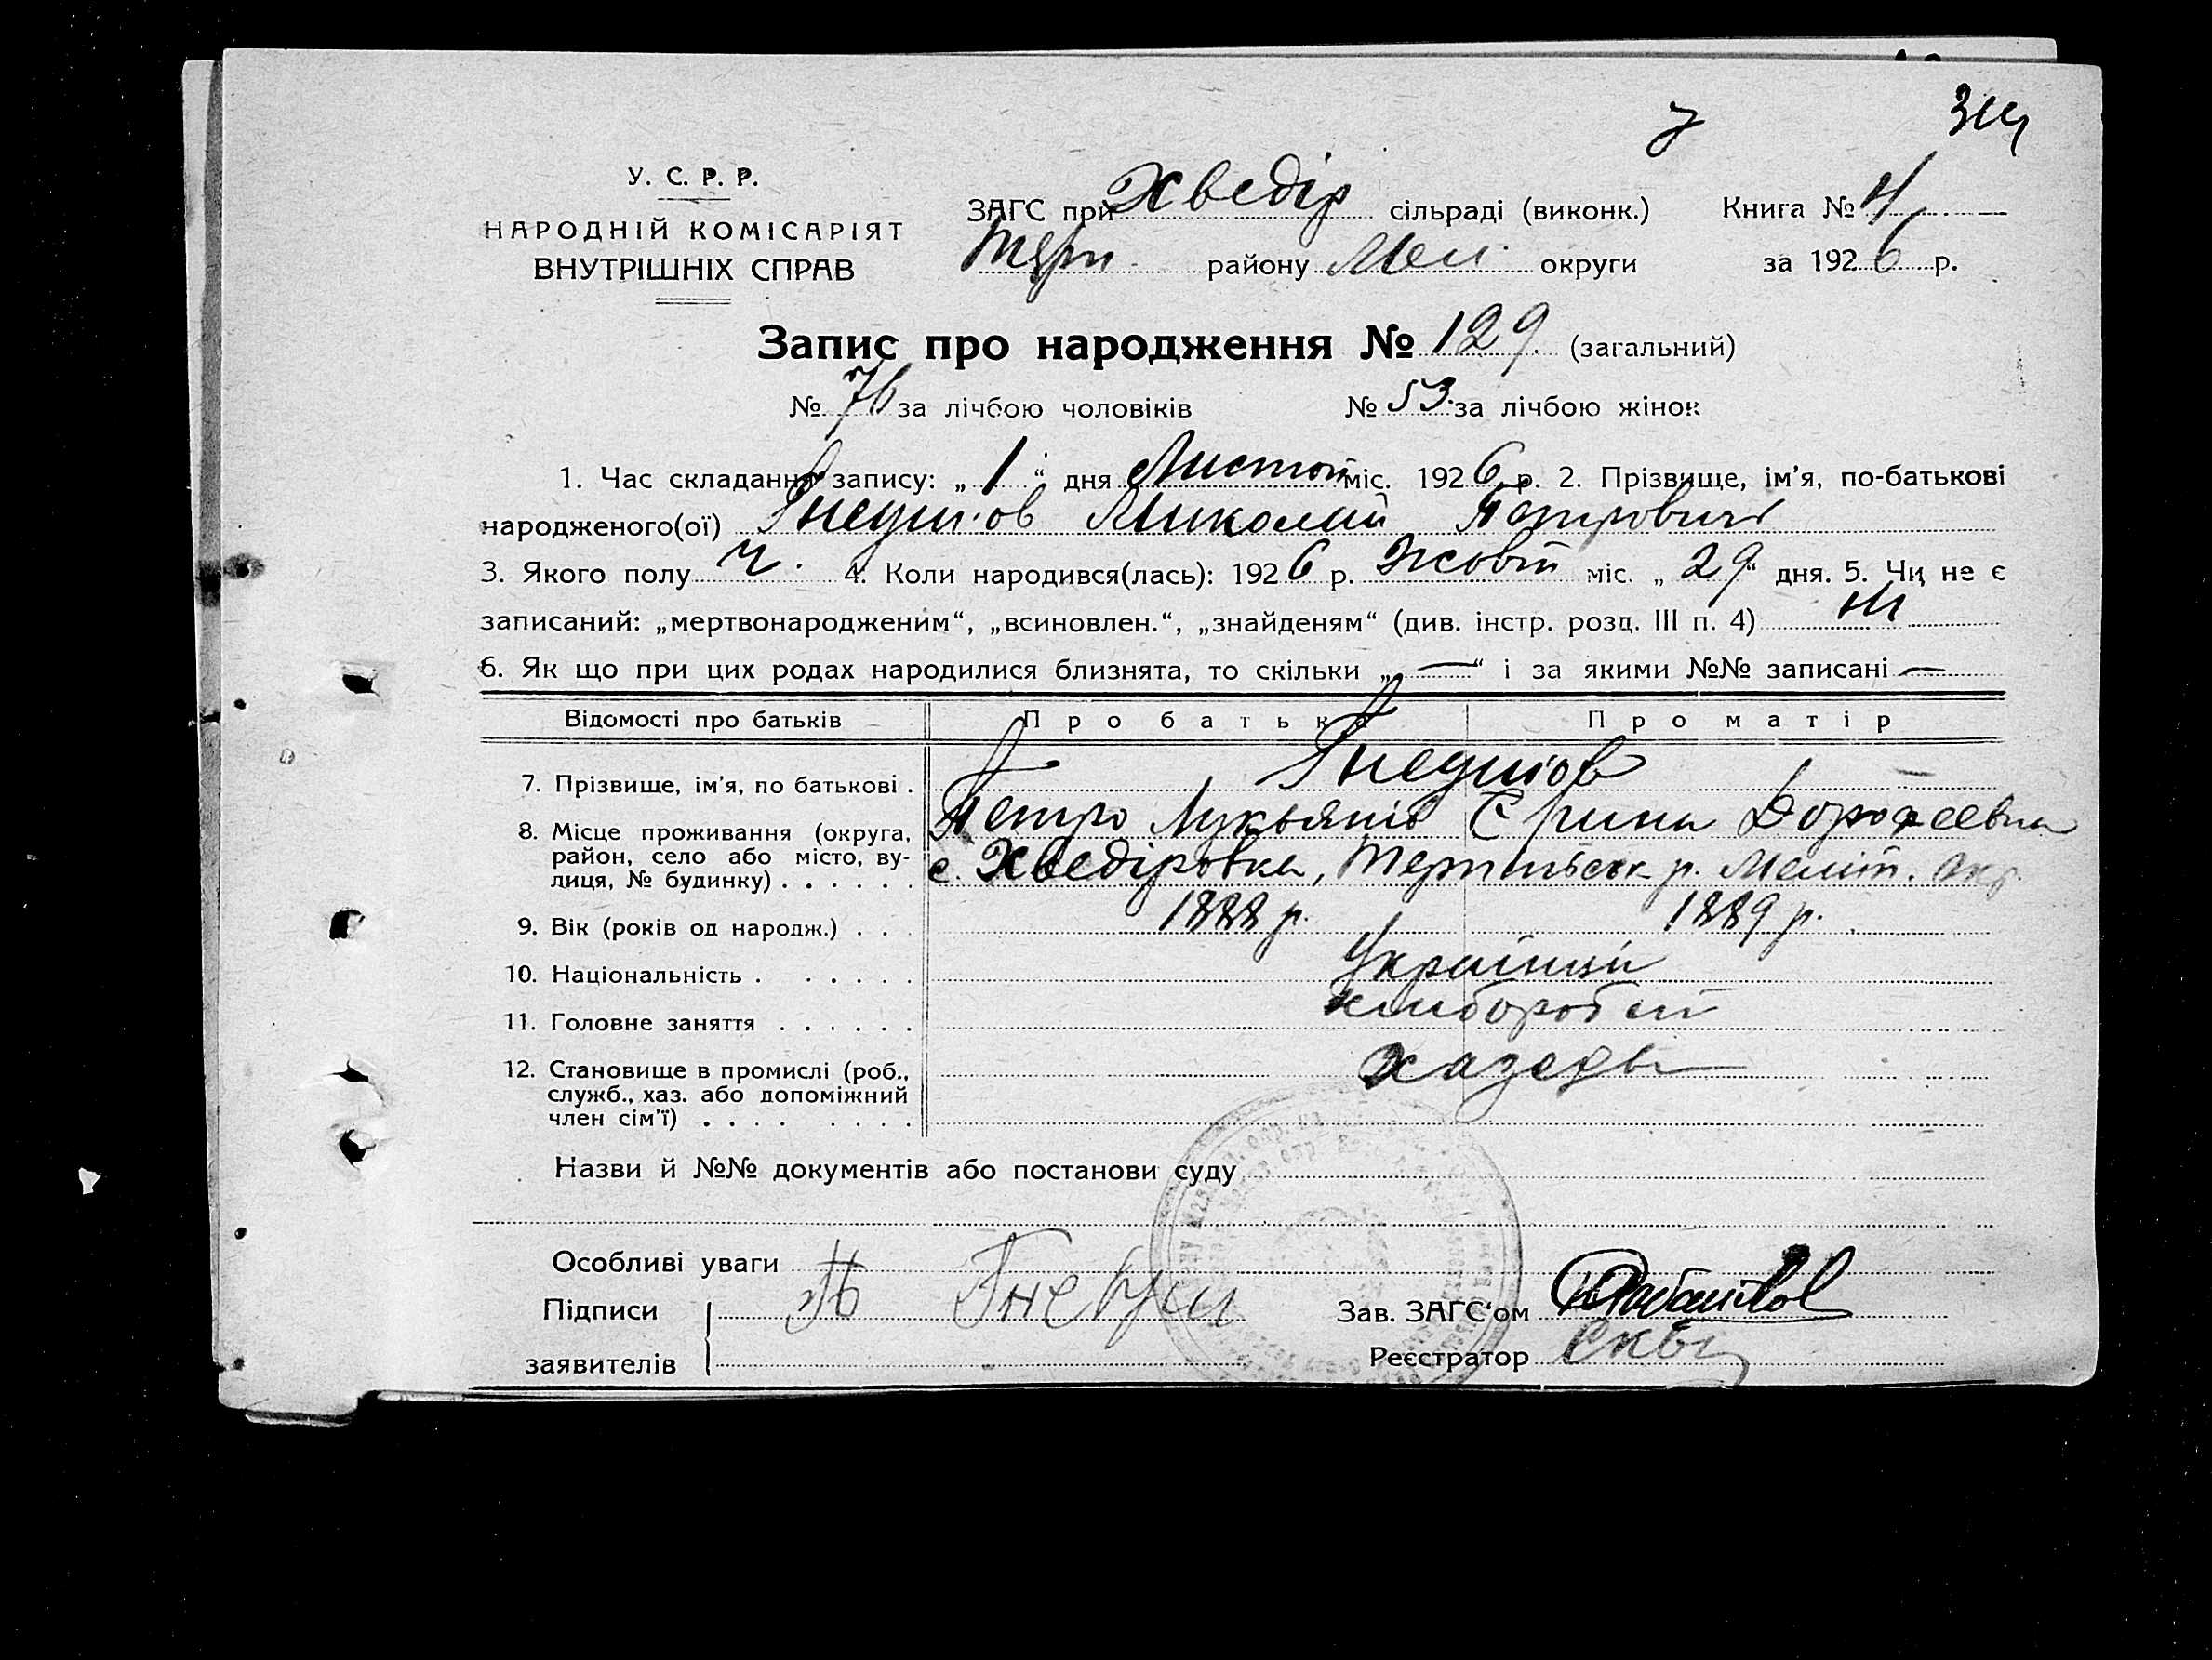 У. С. Р. Р.
НАРОДНІЙ КОМІСАРІЯТ
ВНУТРІШНІХ СПРАВ
ЗАГС при Хведір сільраді (виконк.) Книга № 4
Терп. району Мел. округи за 1926 р.
Запис про народження № 129 (загальний)
№ 76 за лічбою чоловіків № 53 за лічбою жінок
1. Час складання запису: „1“ дня Листоп міс. 1926 р. 2. Прізвище, ім’я, по-батькові
народженого(ої) Миколай Петрович
3. Якого полу ч. 4. Коли народився(лась): 1926 р. Жовт міс. „29“ дня. 5. Чи не є
записаний: „мертвонародженим“, „всиновлен.“, „знайденям“ (див. інстр. розд. III п. 4) ні
6. Як що при цих родах народилися близнята, то скільки „—“ і за якими №№ записані —
Відомості про батьків Про батька Про матір
7. Прізвище, ім’я, по батькові .
Петро Лукьянів Єрина Дорофеевна
8. Місце проживання (округа,
район, село або місто, ву-
лиця, № будинку) . . . . . .
с. Хведіровка, Терпиньськ р. Меліт. окр.
9. Вік (років од народж.) . . . 1888 р. 1889 р.
10. Національність . . . . . . Українці
11. Головне заняття . . . . . .
12. Становище в промислі (роб.,
служб., хаз. або допоміжний
член сім’ї) . . . . . . . .
Назви й №№ документів або постанови суду
Особливі уваги
Підписи
заявителів
Зав. ЗАГС‘ом
Реєстратор